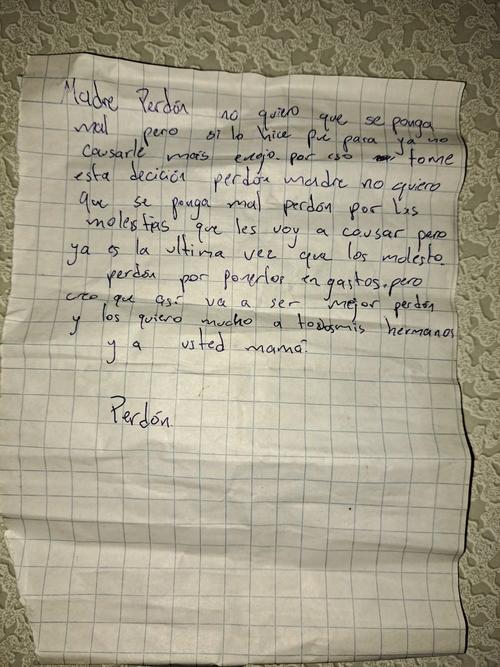 Madre Perdón no quiero que se ponga
mal pero si lo hice fue para ya no
causarle mais enojo. por eso tome
esta decición perdón madre no quiero
que se ponga mal perdón por las
molestias que les voy a causar pero
ya es la ultima vez que los molesto.
perdón por ponerlos en gastos. pero
creo que así va a ser mejor perdón
y los quiero mucho a todos mis hermanos
y a usted mamá.
Perdón.